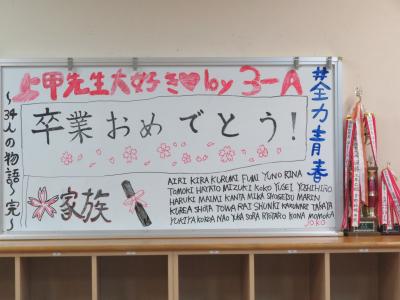 上甲先生大好き♥by 3-A
#全力青春
〜34人の物語〜完〜
卒業おめでとう!
家族
AIRI KIRA KURUMI FUMI YUNO RINA
TOMOKI HAYATO MIZUKI KOKO YUSEI YOSHIHIRO
HARUKI MAIMI KANTA MIKA SHOGEISU MARIN
SHOTA TOWA RAI SHUNKI TAKAYA
YUKIYA NAO YUKA SORA RYOTARO KONA MOMOKA
JOKO